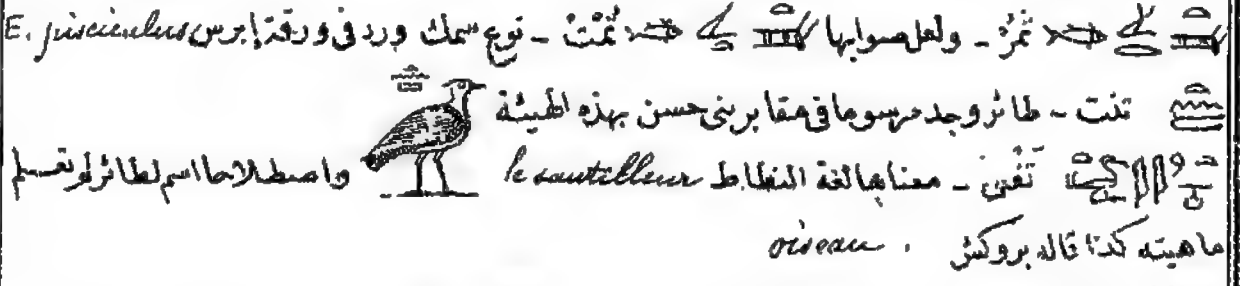 ثمُرُ - ولعل صوابها ثمْتُ - نوع سمك ورد فى ورقة إبرس E. pisciculus
تنت - طائر وجد مرسوما فى مقابر بنى حسن بهذه الهيئة
تَفْنِى - معناها لغة النطاط le sautilleur واصطلاحا اسم لطائر لم تعلم
ماهيته كذا قاله بروكش . oiseau